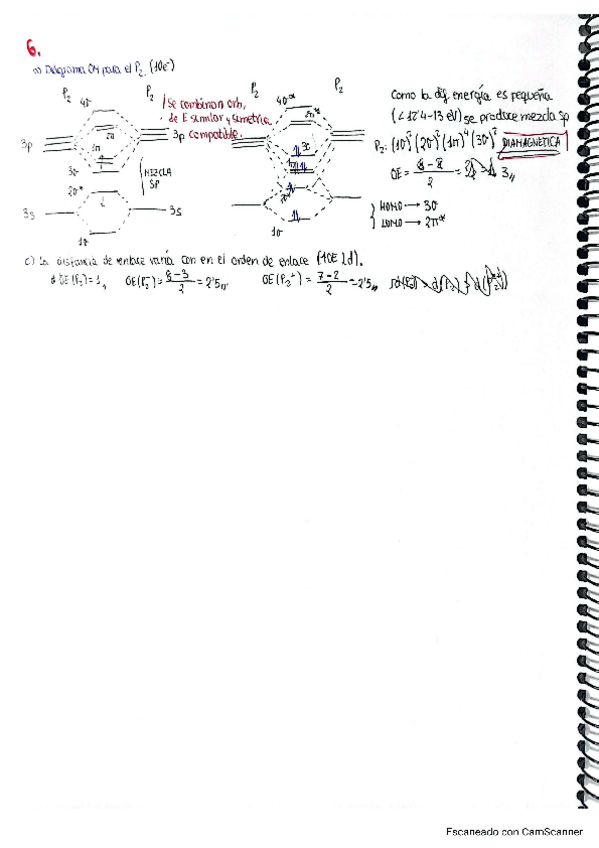 6.
a) Diagrama OM para el P₂ (10e⁻)
P₂ 4σ P₂
3p 2π 3p
3σ 1π
2σ*
3s 3s
1σ
MEZCLA
SP
Se combinan orb,
de E similar y simetría
compatible.
P₂ 4σ* P₂
2π*
3σ
1π
2σ*
1σ
Como la dif energía es pequeña
(<12'4-13 eV) se produce mezcla sp
P₂: (1σ)² (2σ)² (1π)⁴ (3σ)² DIAMAGNÉTICA
OE = 8-2 / 2 = 3,,
HOMO → 3σ
LUMO → 2π*
c) La distancia de enlace varía con en el orden de enlace (↑OE ↓d).
OE(P₂)= 3,, OE(P₂⁻)= 8-3 / 2 = 2'5,, OE(P₂⁺) = 7-2 / 2 = 2'5,,
Escaneado con CamScanner